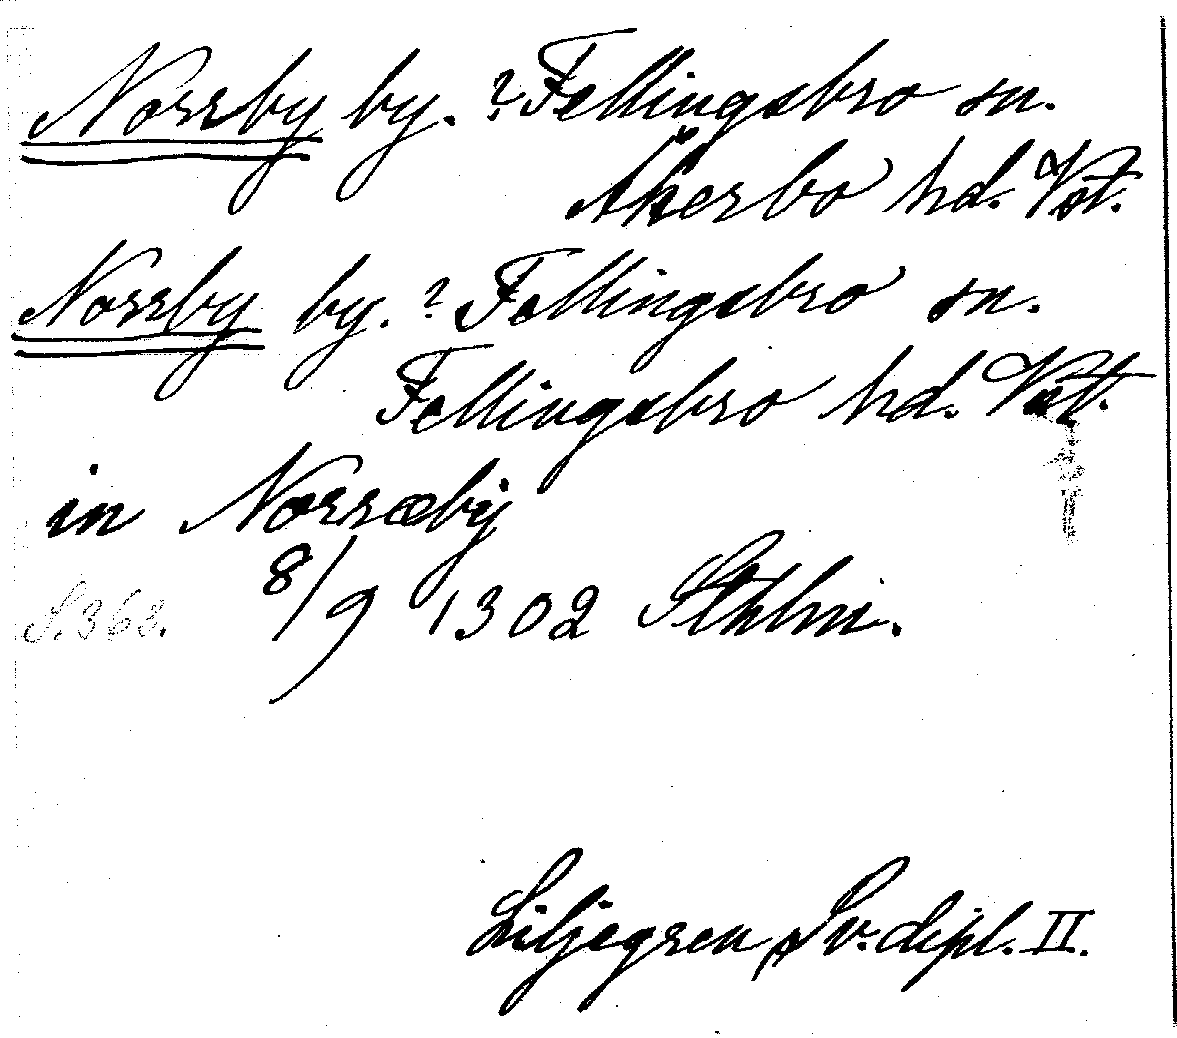 Norrby by. ? Fellingsbro sn.
Åkerbo hd. Vst.
Norrby by. ? Fellingsbro sn.
Fellingsbro hd. Vst.
in Norræby
S. 363. 8/9 1302 Sthlm.
Liljegren, Sv. dipl. II.